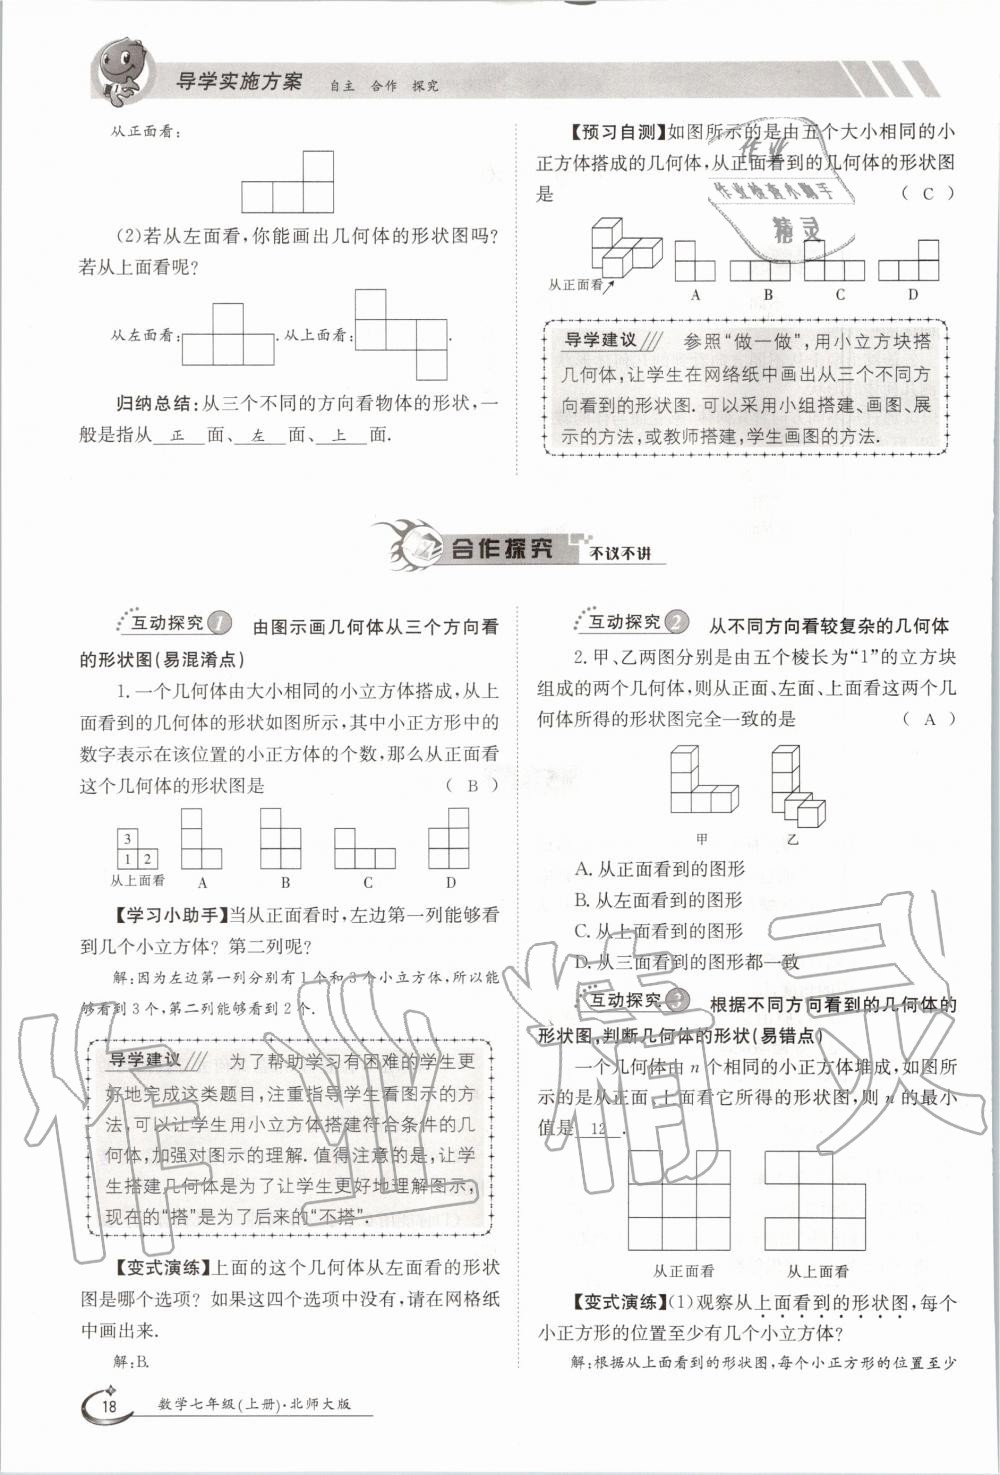 导学实施方案 自主 合作 探究
从正面看:
(2)若从左面看,你能画出几何体的形状图吗?
若从上面看呢?
从左面看: .从上面看: .
归纳总结:从三个不同的方向看物体的形状,一
般是指从 正 面、 左 面、 上 面.
【预习自测】如图所示的是由五个大小相同的小
正方体搭成的几何体,从正面看到的几何体的形状图
是 ( C )
从正面看
A B C D
导学建议 参照“做一做”,用小立方块搭
几何体,让学生在网络纸中画出从三个不同方
向看到的形状图.可以采用小组搭建、画图、展
示的方法,或教师搭建,学生画图的方法.
作业
作业检查小助手
精灵
合作探究 不议不讲
互动探究 1 由图示画几何体从三个方向看
的形状图(易混淆点)
1.一个几何体由大小相同的小立方体搭成,从上
面看到的几何体的形状如图所示,其中小正方形中的
数字表示在该位置的小正方体的个数,那么从正面看
这个几何体的形状图是 ( B )
3
1 2
从上面看 A B C D
【学习小助手】当从正面看时,左边第一列能够看
到几个小立方体? 第二列呢?
解:因为左边第一列分别有1个和3个小立方体,所以能
够看到3个,第二列能够看到2个.
导学建议 为了帮助学习有困难的学生更
好地完成这类题目,注重指导学生看图示的方
法,可以让学生用小立方体搭建符合条件的几
何体,加强对图示的理解.值得注意的是,让学
生搭建几何体是为了让学生更好地理解图示,
现在的“搭”是为了后来的“不搭”.
【变式演练】上面的这个几何体从左面看的形状
图是哪个选项? 如果这四个选项中没有,请在网格纸
中画出来.
解:B.
互动探究 2 从不同方向看较复杂的几何体
2.甲、乙两图分别是由五个棱长为“1”的立方块
组成的两个几何体,则从正面、左面、上面看这两个几
何体所得的形状图完全一致的是 ( A )
甲 乙
A.从正面看到的图形
B.从左面看到的图形
C.从上面看到的图形
D.从三面看到的图形都一致
互动探究 3 根据不同方向看到的几何体的
形状图,判断几何体的形状(易错点)
一个几何体由 n 个相同的小正方体堆成,如图所
示的是从正面、上面看它所得的形状图,则 n 的最小
值是 12 .
从正面看 从上面看
【变式演练】(1)观察从上面看到的形状图,每个
小正方形的位置至少有几个小立方体?
解:根据从上面看到的形状图,每个小正方形的位置至少
作业精灵
18 数学七年级(上册)·北师大版